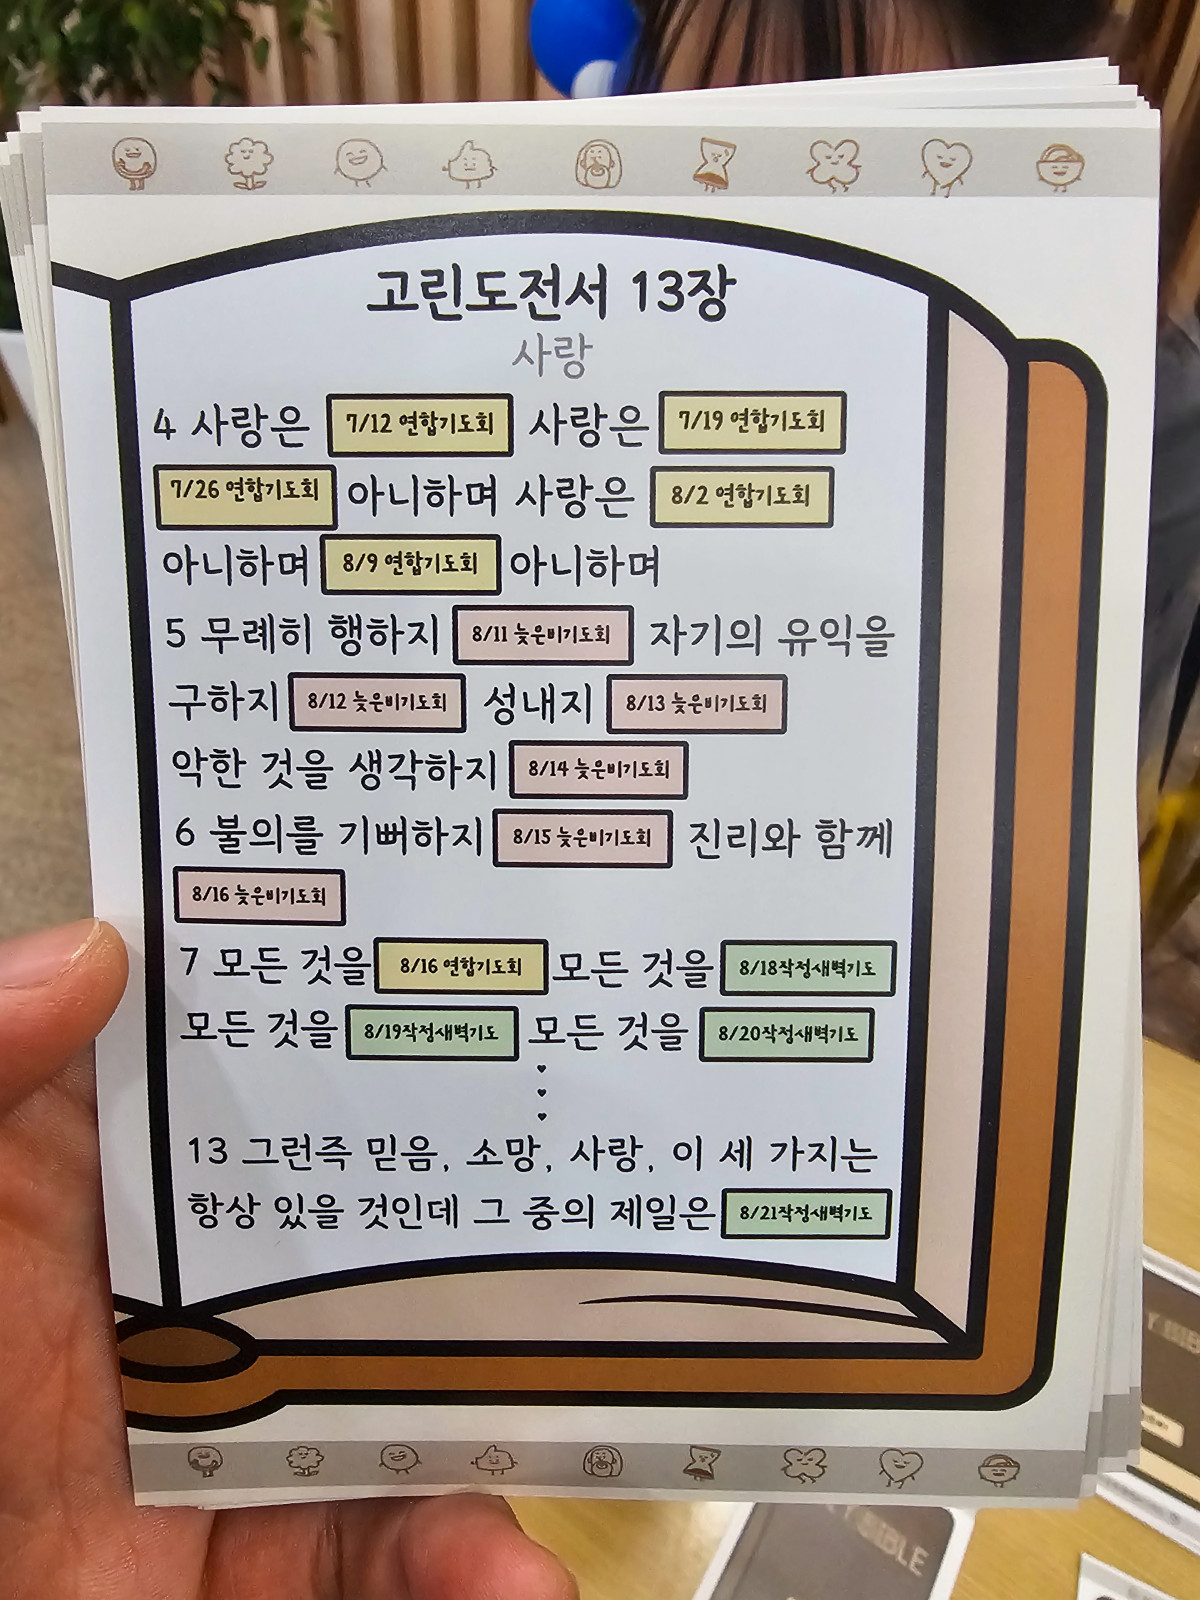 고린도전서 13장
사랑
4 사랑은 7/12 연합기도회 사랑은 7/19 연합기도회
7/26 연합기도회 아니하며 사랑은 8/2 연합기도회
아니하며 8/9 연합기도회 아니하며
5 무례히 행하지 8/11 늦은비기도회 자기의 유익을
구하지 8/12 늦은비기도회 성내지 8/13 늦은비기도회
악한 것을 생각하지 8/14 늦은비기도회
6 불의를 기뻐하지 8/15 늦은비기도회 진리와 함께
8/16 늦은비기도회
7 모든 것을 8/16 연합기도회 모든 것을 8/18작정새벽기도
모든 것을 8/19작정새벽기도 모든 것을 8/20작정새벽기도
13 그런즉 믿음, 소망, 사랑, 이 세 가지는
항상 있을 것인데 그 중의 제일은 8/21작정새벽기도
BIBLE